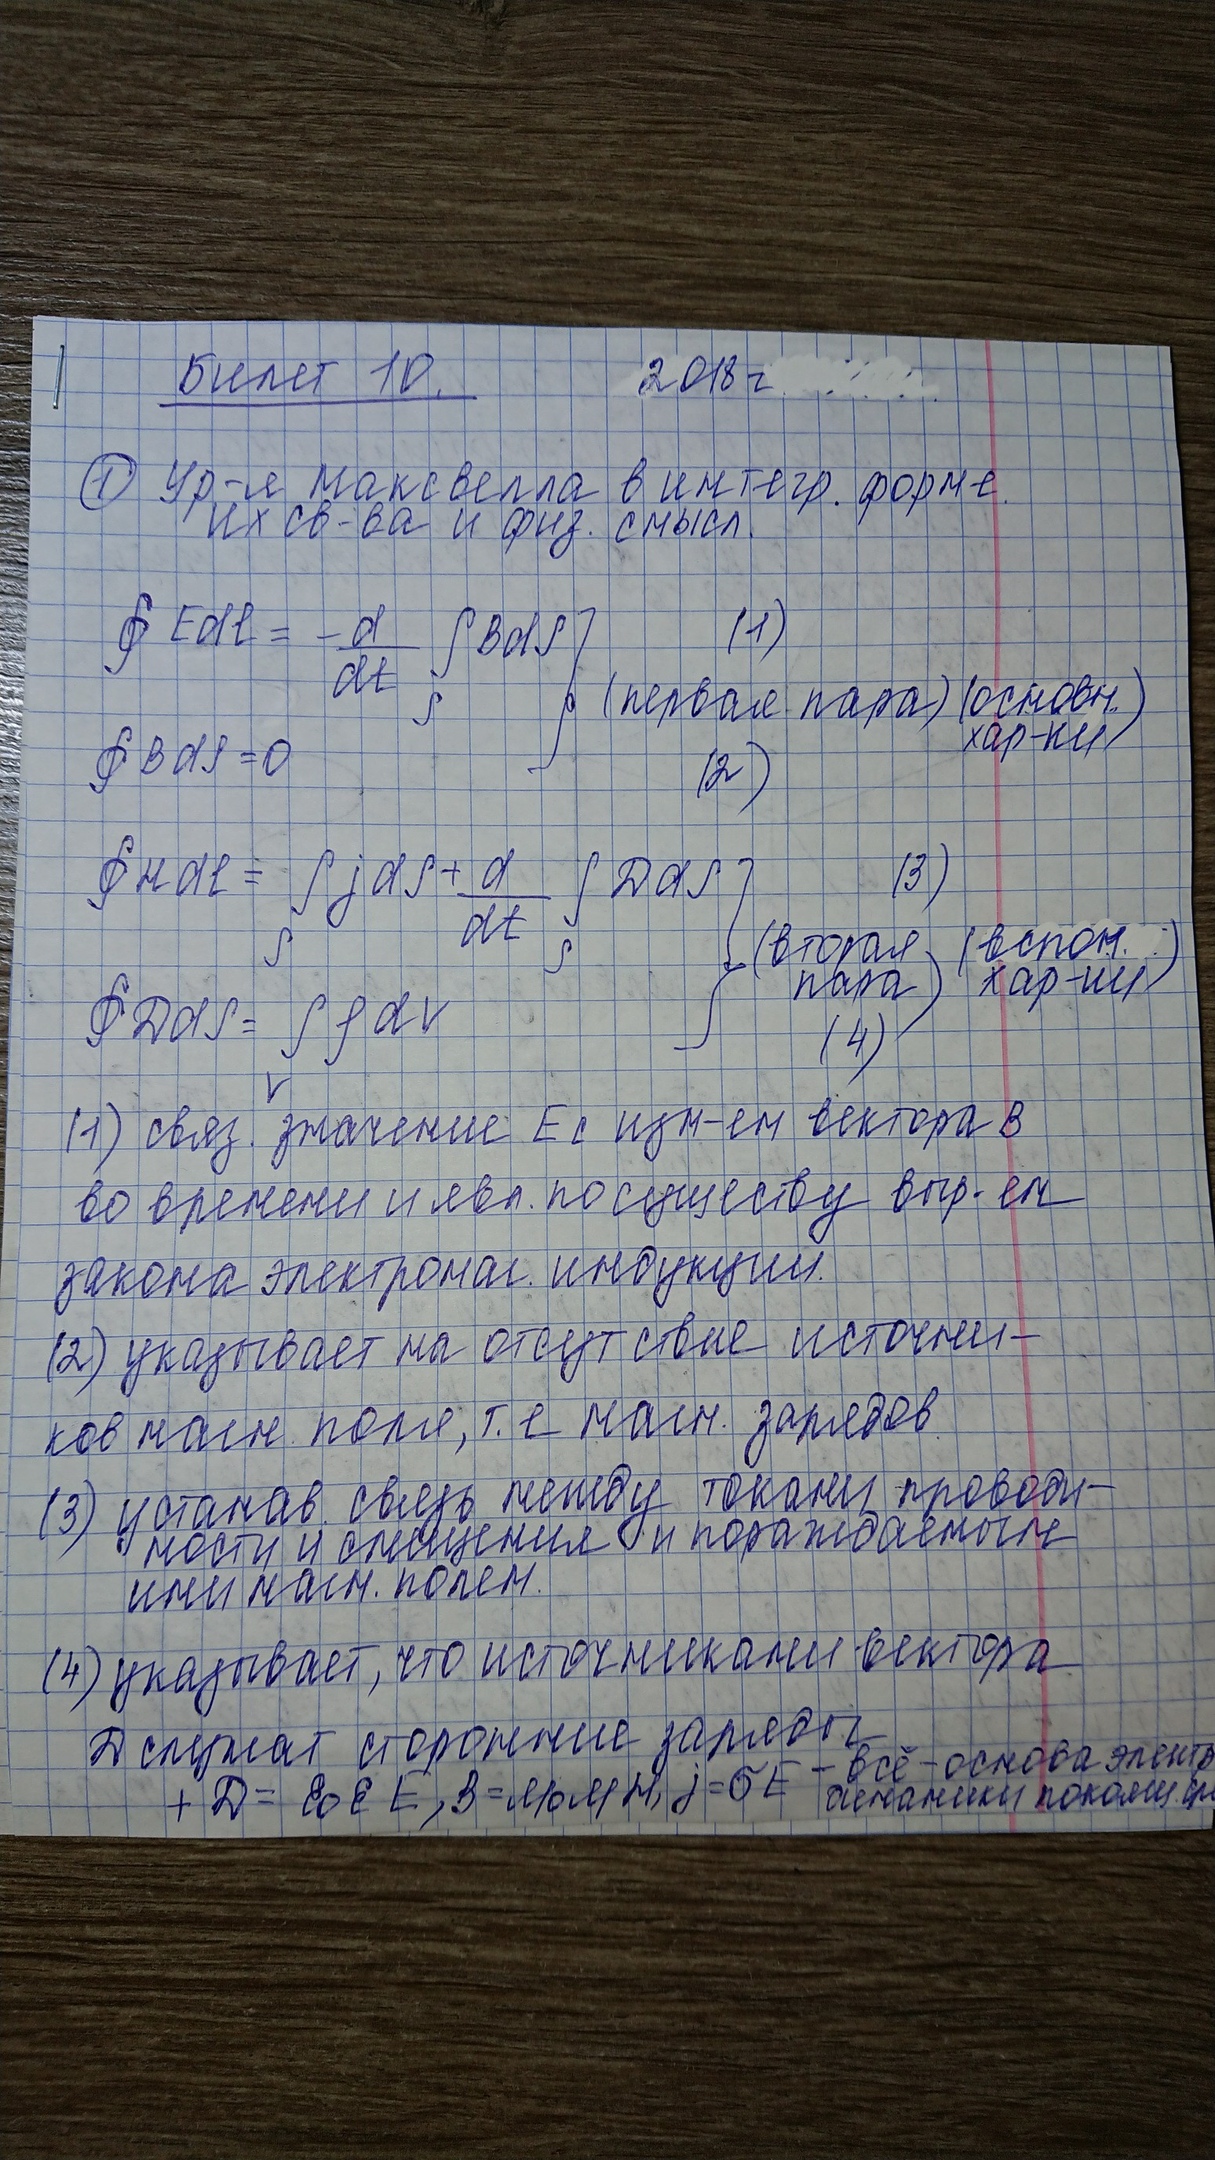 Билет 10. 2018 г
① Ур-я Максвелла в интегр. форме.
их св-ва и физ. смысл.
∮ Edl = -d/dt ∫_S BdS (1)
(первая пара) (основн. хар-ки)
∮ BdS = 0 (2)
∮ Hdl = ∫_S jdS + d/dt ∫_S DdS (3)
(вторая пара) (вспом. хар-ки)
∮ DdS = ∫_V ρdV (4)
(1) связ. значение E с изм-ем вектора B
во времени и явл. по существу выр-ем
закона электромаг. индукции.
(2) указывает на отсутствие источни-
ков магн. поля, т.е магн. зарядов
(3) устанав. связь между токами проводи-
мости и смещения и пораждаемым
ими магн. полем.
(4) указывает, что источниками вектора
D служат сторонние заряды
+ D = ε₀εE, B = μ₀μH, j = σE - всё - основа электро
динамики покоящ.